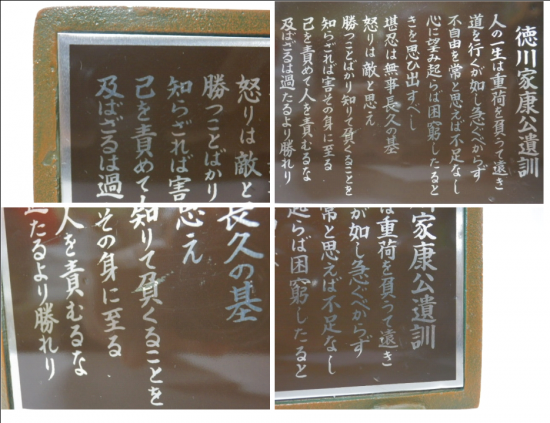 怒りは敵と
勝つことばかり
知らざれば害
己を責めて
及ばざるは過
徳川家康公遺訓
人の一生は重荷を負って遠き
道を行くが如し急ぐべからず
不自由を常と思えば不足なし
心に望み起らば困窮したると
きを思ひ出すべし
堪忍は無事長久の基
怒りは敵と思え
勝つことばかり知りて負くることを
知らざれば害その身に至る
己を責めて人を責むるな
及ばざるは過たるより勝れり
長久の基
思え
知りて負くることを
その身に至る
人を責むるな
たるより勝れり
家康公遺訓
は重荷を負って遠き
が如し急ぐべからず
常と思えば不足なし
起らば困窮したると